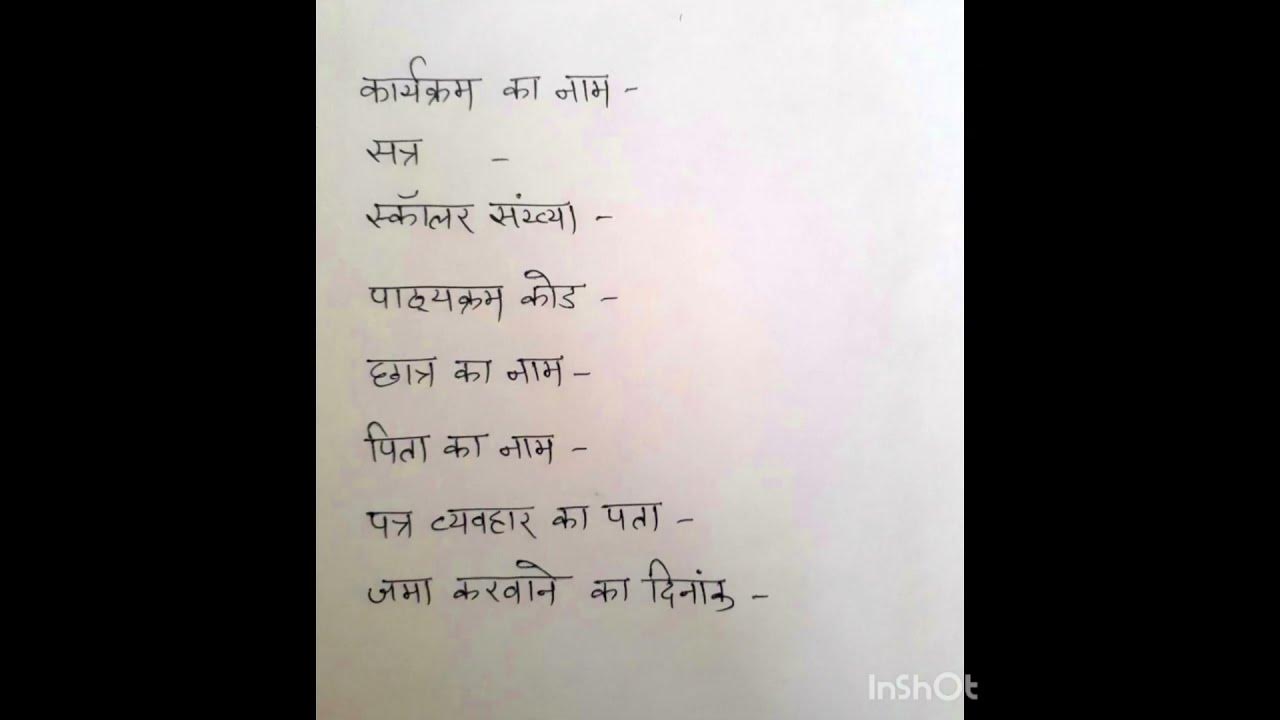 कार्यक्रम का नाम -
सत्र -
स्कॉलर संख्या -
पाठ्यक्रम कोड -
छात्र का नाम -
पिता का नाम -
पत्र व्यवहार का पता -
जमा करवाने का दिनांक -
InShOt